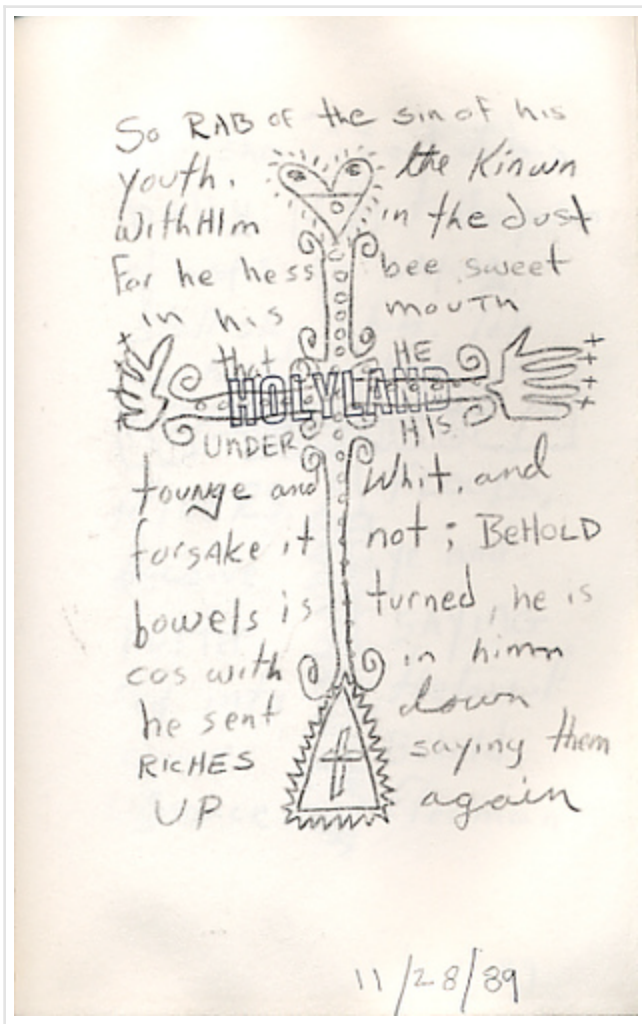 So RAB of the sin of his
youth. the Kinwn
with HIm in the dust
For he hess bee sweet
in his mouth
that HE
HOLYLAND
UNDER HIS
tounge and Whit, and
forsake it not; BeHOLD
bowels is turned, he is
cos with in himn
he sent down
RICHES saying them
UP again
11/28/89